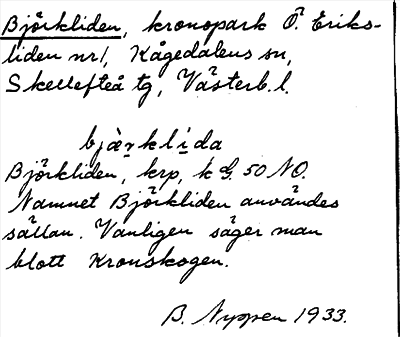 Björkliden, kronopark Ö. Eriks-
liden nr 1, Kågedalens sn,
Skellefteå tg, Västerb. l.
bjὰrklída
Björkliden, krp, k 50 NO.
Namnet Björkliden användes
sällan. Vanligen säger man
blott Kronskogen.
B. Nyppen 1933.